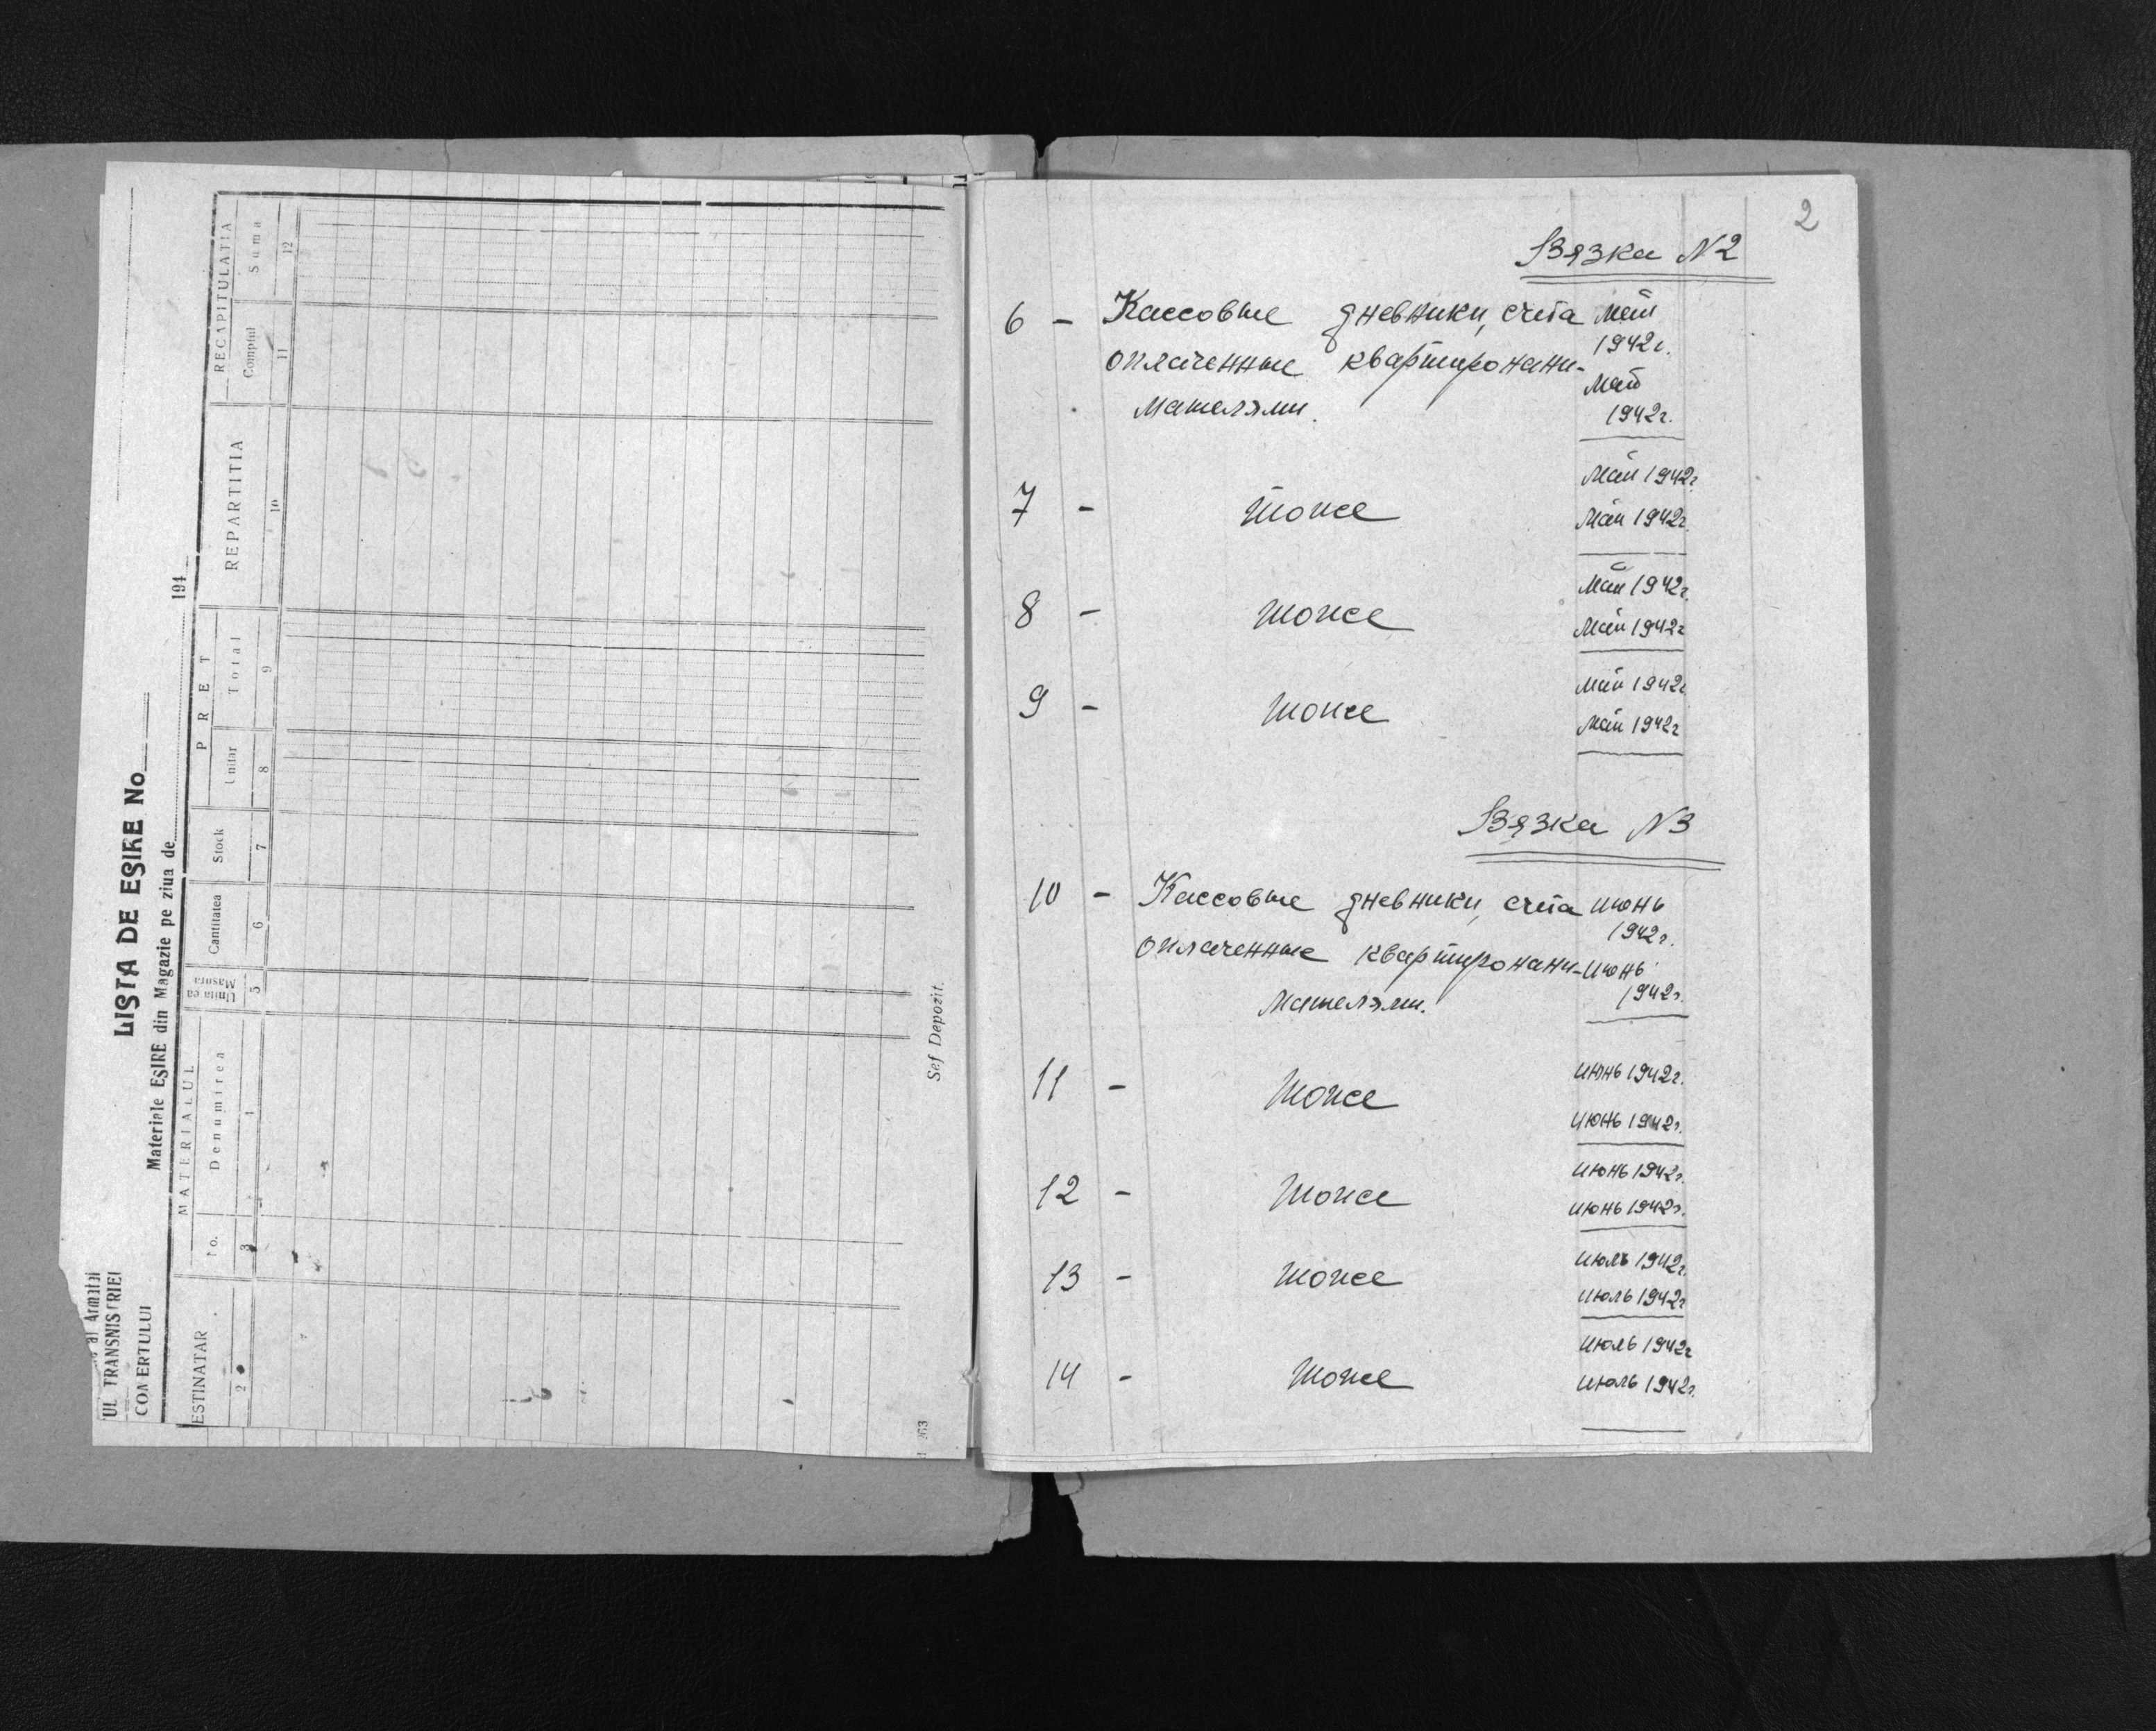 UL TRANSNISTRIEI
LISTA DE EŞIRE No
Materiale EŞIRE din Magazie pe ziua de 194
ESTINATAR
MATERIALUL
Denumirea
Unita ea Masura
Cantitatea
Stock
PRET
Unitar
Total
REPARTITIA
RECAPITULATIA
Comptul
Suma
2 3 4 5 6 7 8 9 10 11 12
Sef Depozit.
2
Вязка N2
6 - Кассовые дневники, счета май
1942г.
оплаченные квартиронани-
май
мателями.
1942г.
май 1942г.
7 - тоже
май 1942г.
май 1942г.
8 - тоже
май 1942г
май 1942г
9 - тоже
май 1942г
Вязка N3
10 - Кассовые дневники, счета июнь
1942г.
оплаченные квартиронани- июнь
мателями.
1942г.
июнь 1942г.
11 - тоже
июнь 1942г.
июнь 1942г.
12 - тоже
июнь 1942г.
июль 1942г.
13 - тоже
июль 1942г
июль 1942г
14 - тоже
июль 1942г.